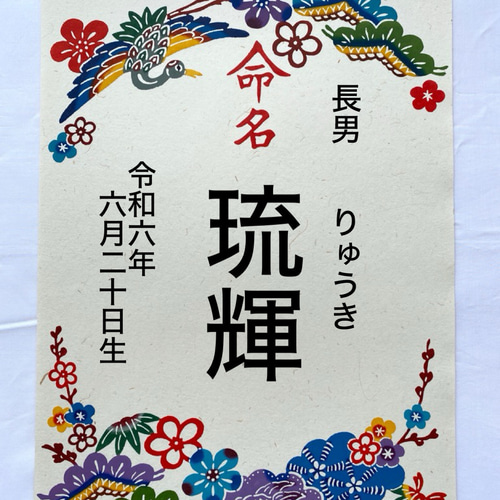 命名
長男
りゅうき
琉輝
令和六年
六月二十日生